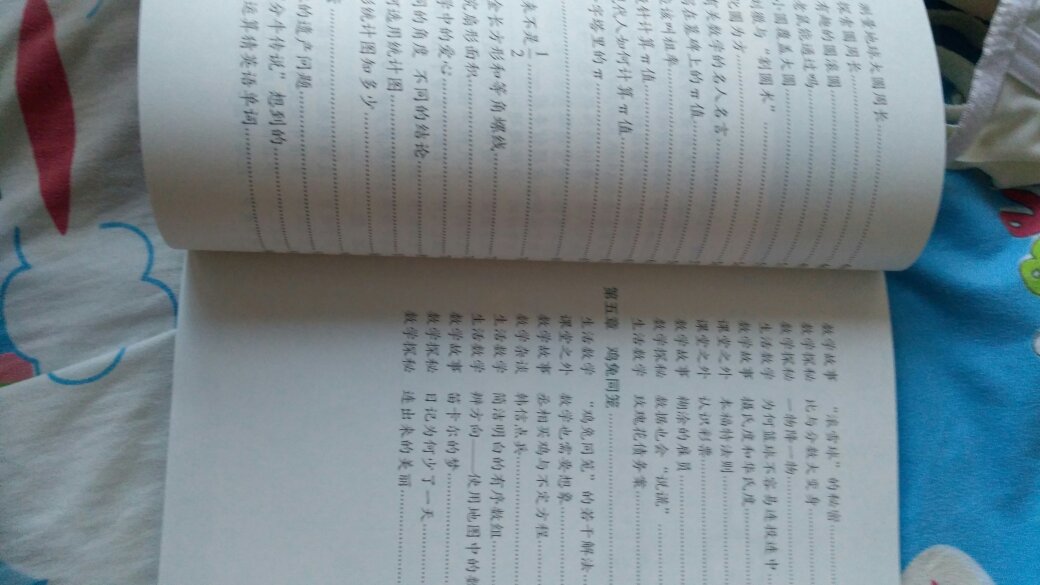 测量地球大圆周长
探索圆周长
有趣的圆滚圆
老鼠能通过吗
小圆覆盖大圆
刘徽与“割圆术”
化圆为方
有关数学的名人名言
刻在墓碑上的π值
应该叫祖率
投针计算π值
现代人如何计算π值
字塔里的π
来不是1/2
金长方形和等角螺线
究扇形面积
学中的爱心
同的角度 不同的结论
何选用统计图
形统计图知多少
的遗产问题
分牛传说”想到的
运算猜英语单词
数学故事 “滚雪球”的秘密
数学探秘 比与分数大变身
数学探秘 一物降一物
生活数学 为何篮球不容易连投连中
数学故事 摄氏度和华氏度
课堂之外 本福特法则
课堂之外 认识彩票
数学故事 糊涂的雇员
数学探秘 数据也会“说谎”
生活数学 玫瑰花债务案
第五章 鸡兔同笼
生活数学 “鸡兔同笼”的若干解法
课堂之外 数学也需要想象
数学故事 丞相买鸡与不定方程
数学杂谈 韩信点兵
生活数学 简洁明白的有序数组
生活数学 辨方向——使用地图中的数
数学故事 笛卡尔的梦
数学探秘 日记为何少了一天
数学探秘 连出来的美丽